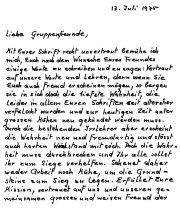 13. Juli 1975
Liebe Gruppenfreunde,
Mit Eurer Schrift recht unvertraut bemühe ich
mich, Euch nach dem Wunsche Eures Freundes
einige Worte zu schreiben und zu sagen: Vertraut
auf unsere Worte und Lehren, denn wenn sie
Euch auch fremd erscheinen mögen, so bergen
sie in sich doch die tiefste Wahrheit, die
leider in allen Euren Schriften seit altersher
verfälscht wurden und zur heutigen Zeit mit
grossen Mühen neu gebildet werden muss.
Durch die bestehenden Irrlehren aber erscheint
die Wahrheit neu und fremdartig und stösst
auch harten Widerstand mit sich. Doch die Wahr-
heit muss durchbrechen und Ihr alle sollet
ihr zum Siege verhelfen. Scheuet daher
weder Arbeit noch Mühe, um die Grund-
steine zum Sieg zu legen. Erfüllet Eure
Mission, vertrauet auf uns und unseren ge-
meinsamen grossen und weisen Freund der